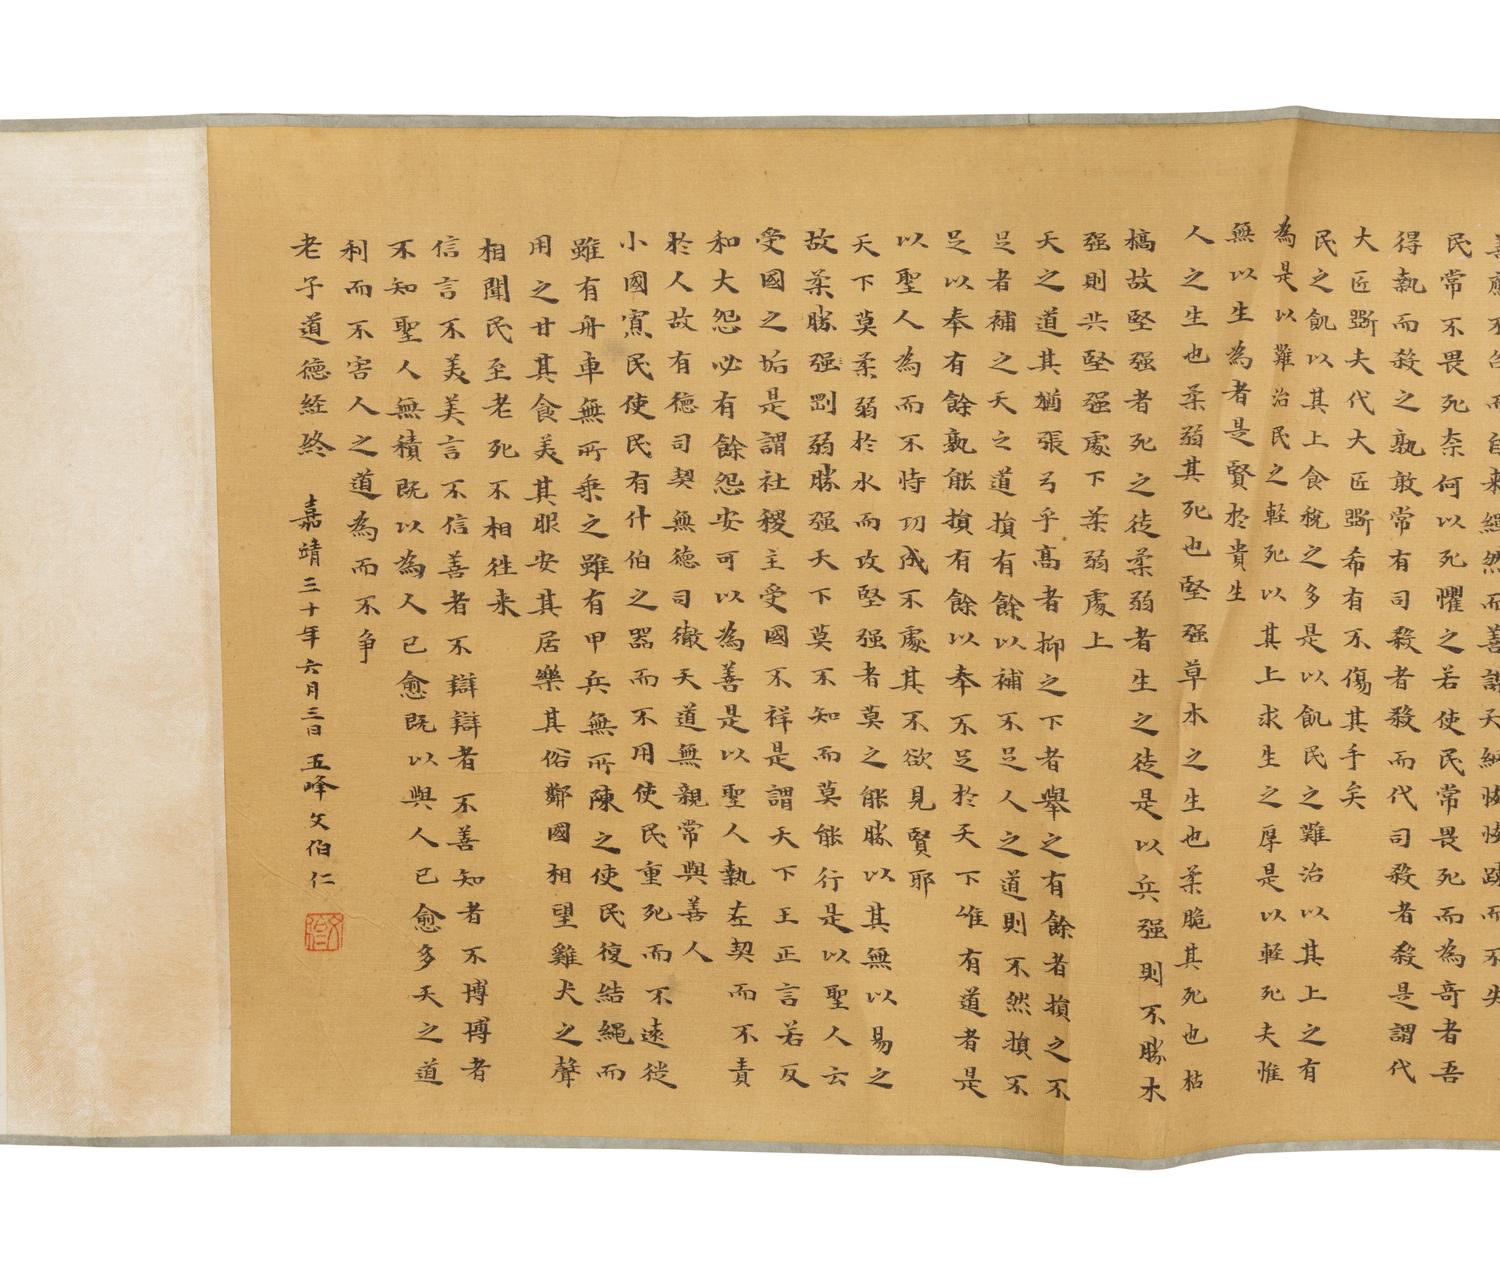 善應不召而自来繟然而善謀天網恢恢踈而不失
民常不畏死奈何以死懼之若使民常畏死而為奇者吾
得執而殺之孰敢常有司殺者殺而代司殺者殺是謂代
大匠斲夫代大匠斲希有不傷其手矣
民之飢以其上食稅之多是以飢民之難治以其上之有
為是以難治民之軽死以其上求生之厚是以軽死夫惟
無以生為者是賢於貴生
人之生也柔弱其死也堅强草木之生也柔脆其死也枯
槁故堅强者死之徒柔弱者生之徒是以兵强則不勝木
强則共堅强處下柔弱處上
天之道其猶張弓乎高者抑之下者舉之有餘者損之不
足者補之天之道損有餘以補不足人之道則不然損不
足以奉有餘孰能損有餘以奉不足於天下唯有道者是
以聖人為而不恃功成不處其不欲見賢耶
天下莫柔弱於水而攻堅强者莫之能勝以其無以易之
故柔勝强剛弱勝强天下莫不知而莫能行是以聖人云
受國之垢是謂社稷主受國不祥是謂天下王正言若反
和大怨必有餘怨安可以為善是以聖人執左契而不責
於人故有德司契無德司徹天道無親常與善人
小國寡民使民有什伯之器而不用使民重死而不遠徙
雖有舟車無所乗之雖有甲兵無所陳之使民復結繩而
用之甘其食美其服安其居樂其俗鄰國相望雞犬之聲
相聞民至老死不相徃来
信言不美美言不信善者不辯辯者不善知者不博博者
不知聖人無積既以為人己愈既以與人己愈多天之道
利而不害人之道為而不争
老子道德経終
嘉靖三十年六月三日五峰文伯仁